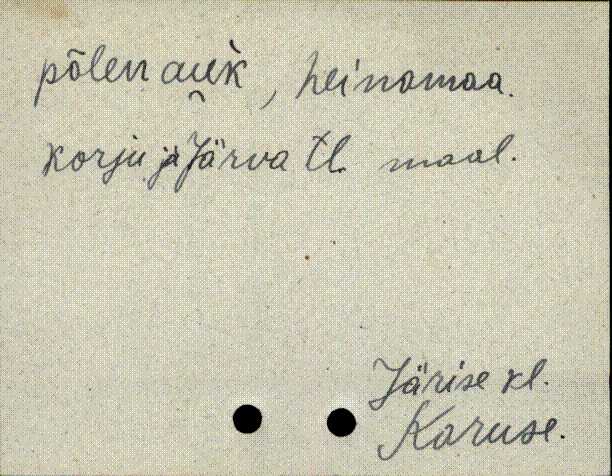 põlen auk, heinamaa.
Korju ja Järva tl. maal.
Järise kl.
Karuse.